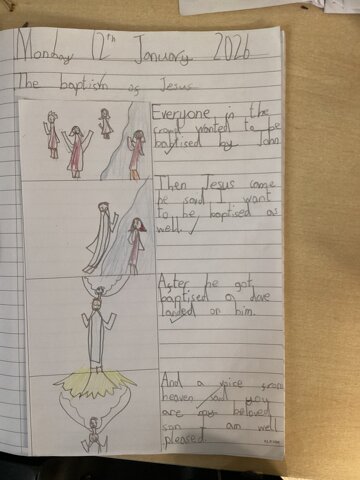 Monday 12th January 2026
The baptism of Jesus
Everyone in the
crowd wanted to be
baptised by John
Then Jesus came
he said I want
to be baptised as
well.
After he got
baptised a dove
landed on him.
And a voice from
heaven said you
are my beloved
son I am well
pleased.